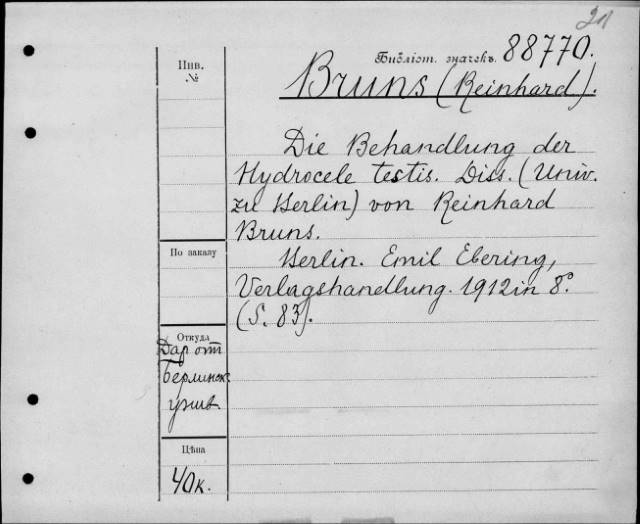 21
Библіот. значекъ. 88770.
Bruns (Reinhard).
Инв.
№
Die Behandlung der
Hydrocele testis. Diss. (Univ.
zu Berlin) von Reinhard
Bruns.
Berlin. Emil Ebering,
Verlagshandlung. 1912 in 8°.
(S. 83).
По заказу
Откуда
Дар от
Берлинск.
унив
Цѣна
40 к.